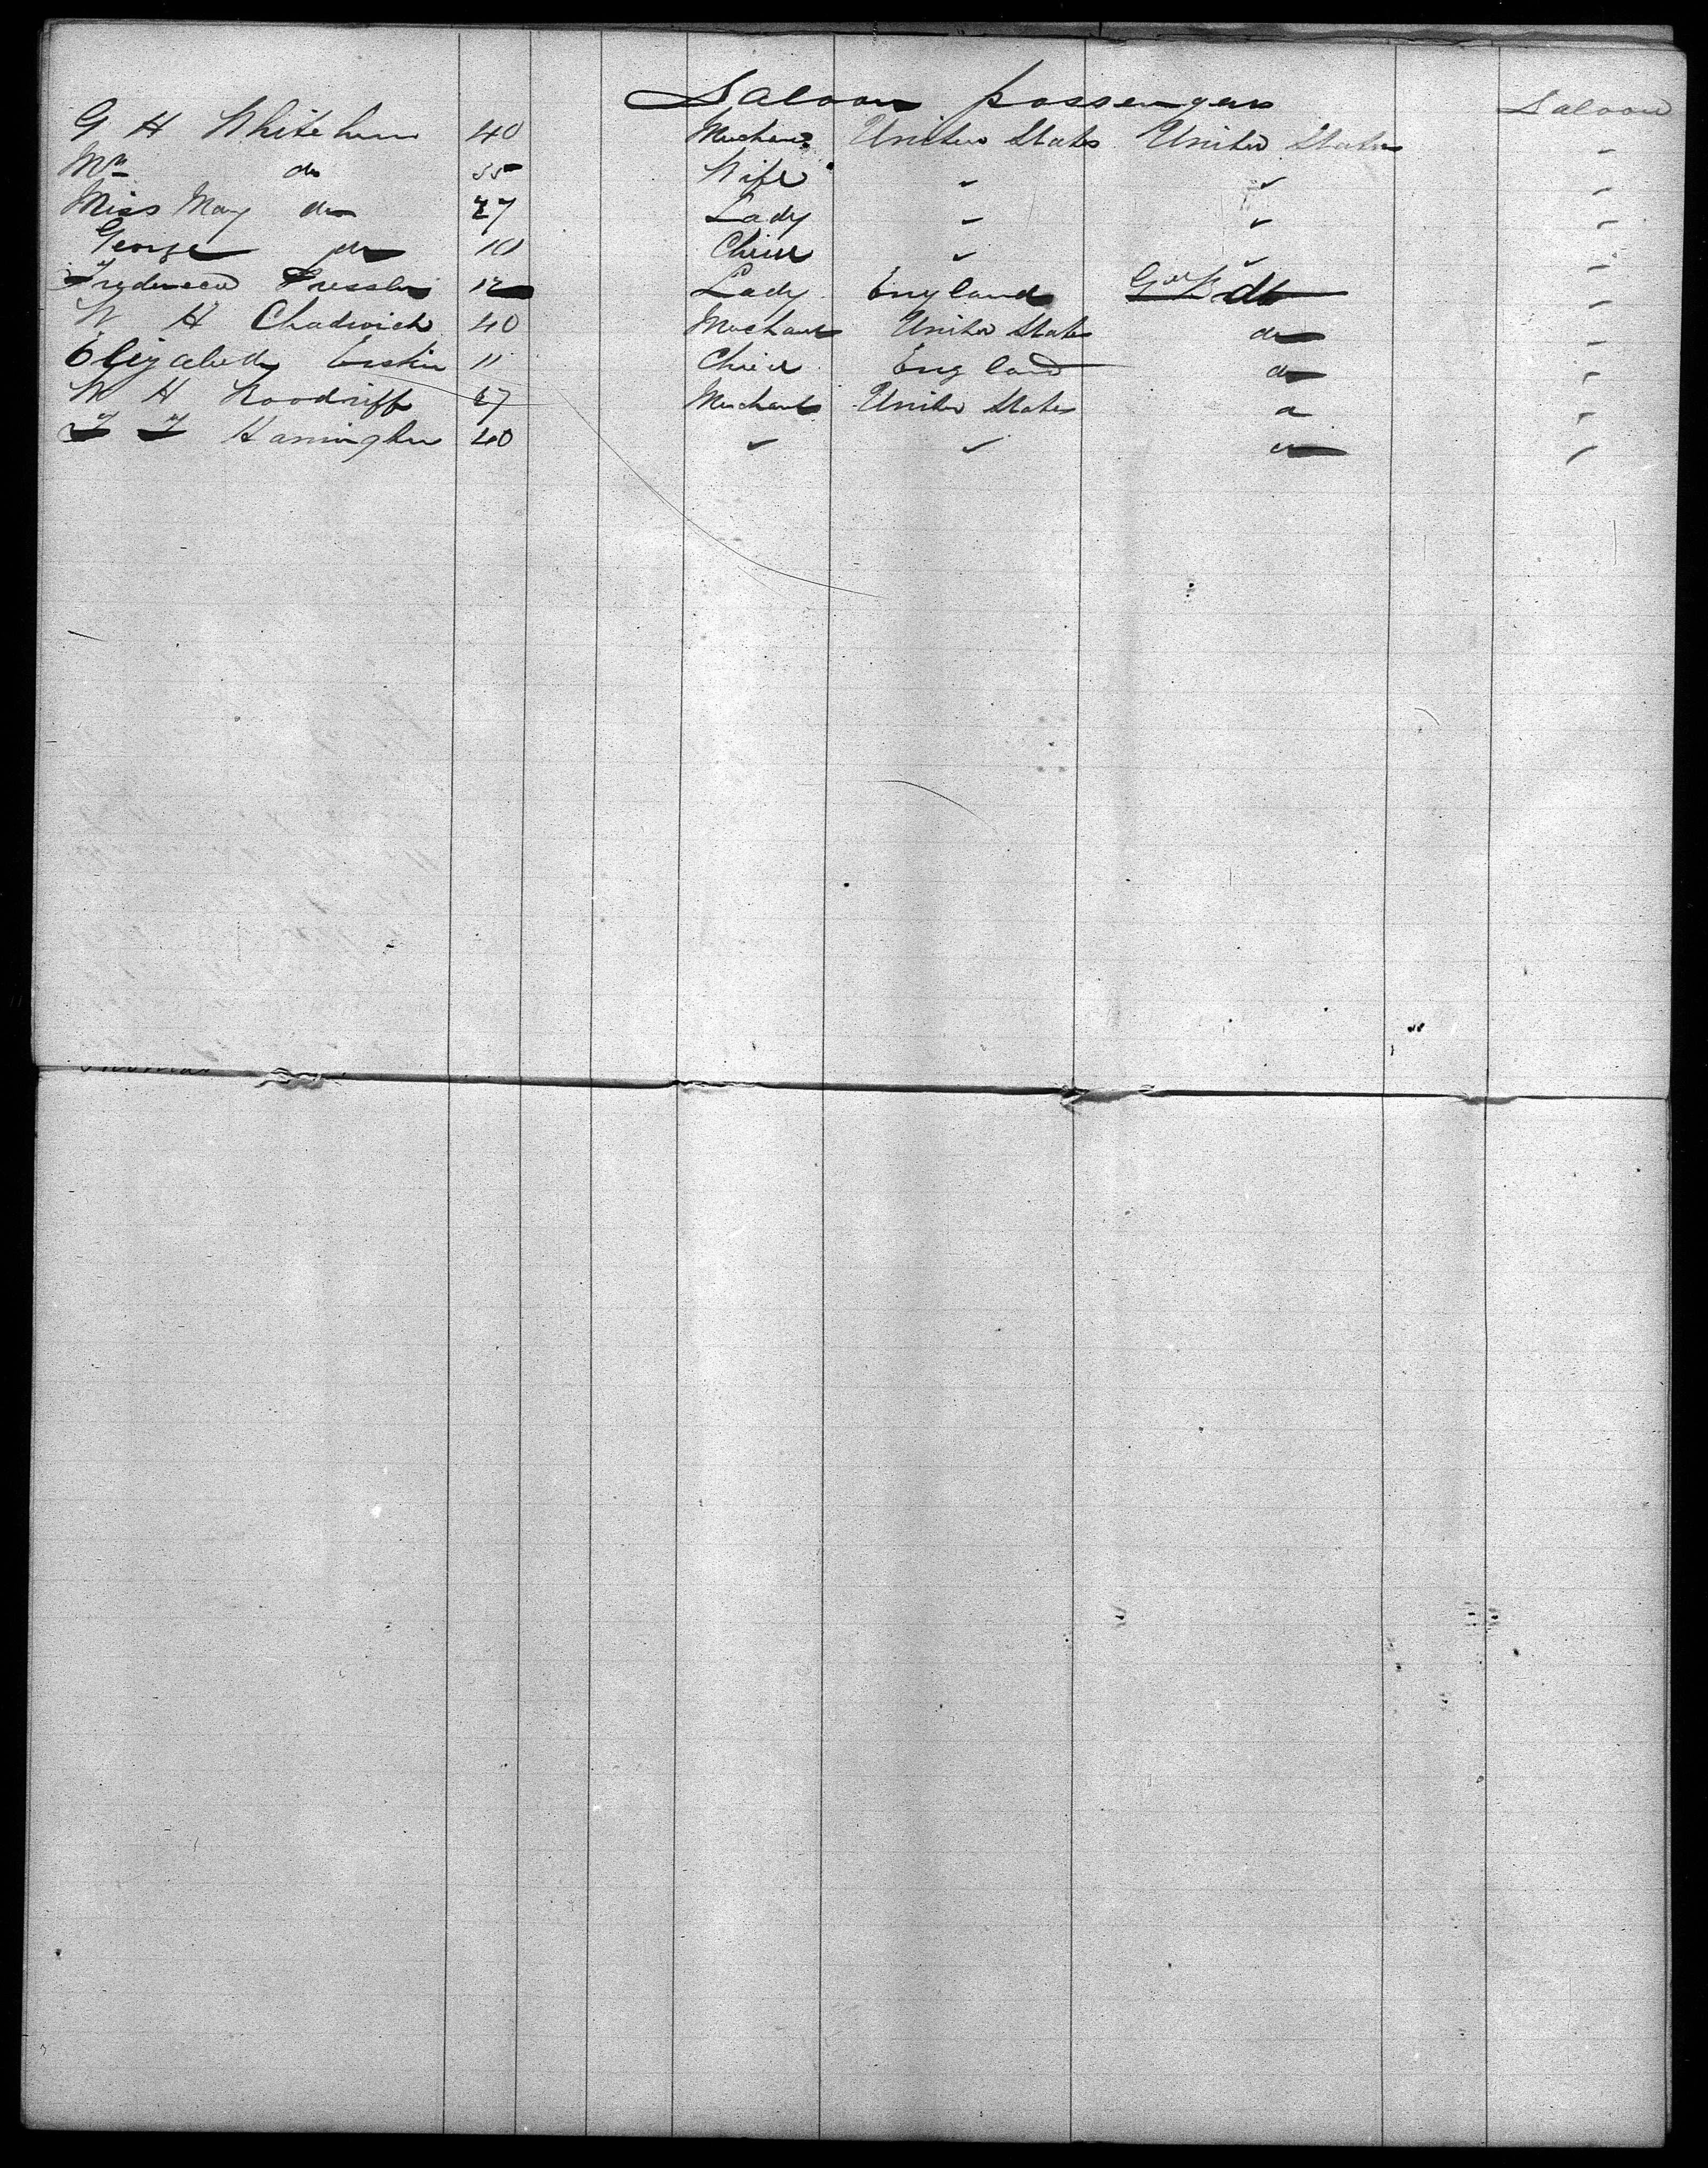 Saloon passengers Saloon
G H Whitehurn 40 Merchant United States United States "
Mrs do 35 Wife " " "
Miss May do 27 Lady " " "
George do 10 Child " " "
12 Lady England do "
W H Chadwick 40 Merchant United States do "
Elizabeth Erskin 11 Child England do "
W H Woodriff 27 Merchant United States do "
Harrington 40 " " do "